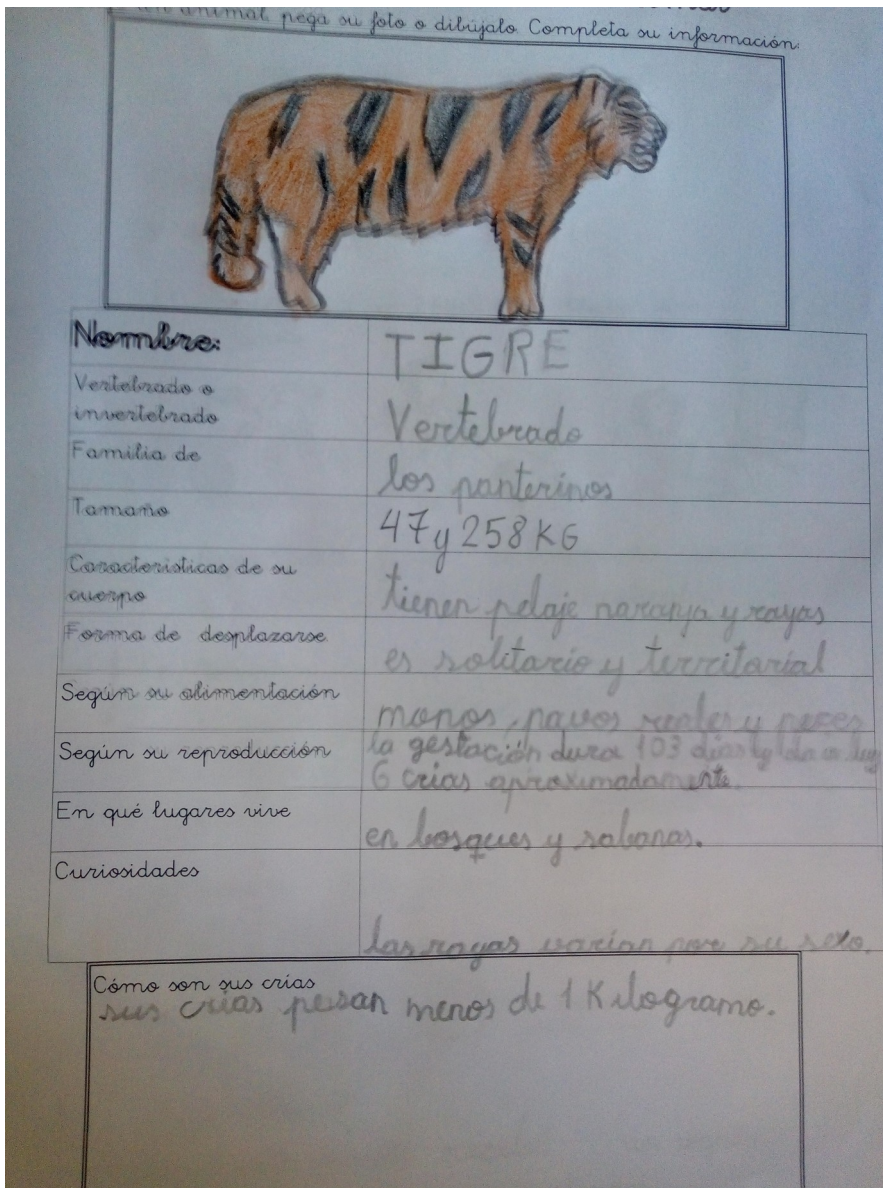 un animal pega su foto o dibújalo Completa su información.
Nombre:
TIGRE
Vertebrado o
invertebrado
Vertebrado
Familia de
los panterinos
Tamaño
47 y 258 KG
Características de su
cuerpo
tienen pelaje naranja y rayas
Forma de desplazarse
es solitario y territorial
Según su alimentación
monos, pavos reales y peces
Según su reproducción
la gestación dura 103 dias y da a luz
6 crias aproximadamente.
En qué lugares vive
en bosques y sabanas.
Curiosidades
las rayas varian por su sexo.
Cómo son sus crías
sus crias pesan menos de 1 Kilogramo.